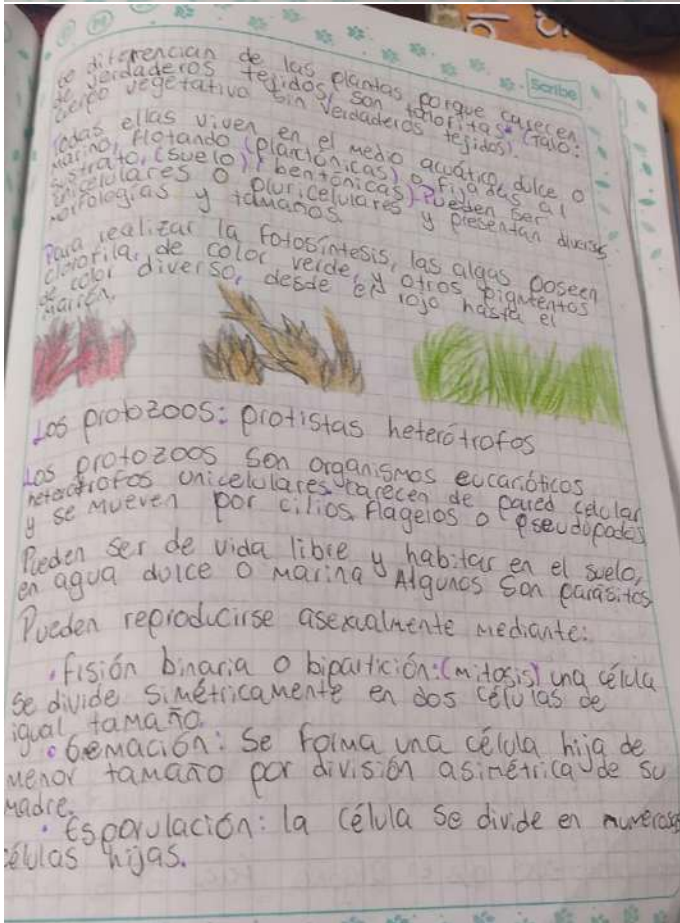 Scribe
se diferencian de las plantas porque casecen
de verdaderos tejidos, son talofitas (Talo:
cuerpo vegetativo sin verdaderos tejidos).
Todas ellas viven en el medio acuático, dulce o
marino, flotando (planctónicas) o fijadas al
sustrato, (suelo) (bentónicas) Pueden ser
unicelulares o pluricelulares y presentan diversas
morfologías y tamaños.
Para realizar la fotosíntesis, las algas poseen
clorofila, de color verde, y otros pigmentos
de color diverso, desde el rojo hasta el
marrón.
Los protozoos: protistas heterótrofos
Los protozoos son organismos eucarióticos
heterótrofos unicelulares carecen de pared celular
y se mueven por cilios, flagelos o pseudópodos
Pueden ser de vida libre y habitar en el suelo,
en agua dulce o marina Algunos son parásitos
Pueden reproducirse asexualmente mediante:
• fisión binaria o bipartición: (mitosis) una célula
se divide simétricamente en dos células de
igual tamaño.
• Gemación: Se forma una célula hija de
menor tamaño por división asimétrica de su
madre.
• Esporulación: la célula se divide en numerosas
células hijas.